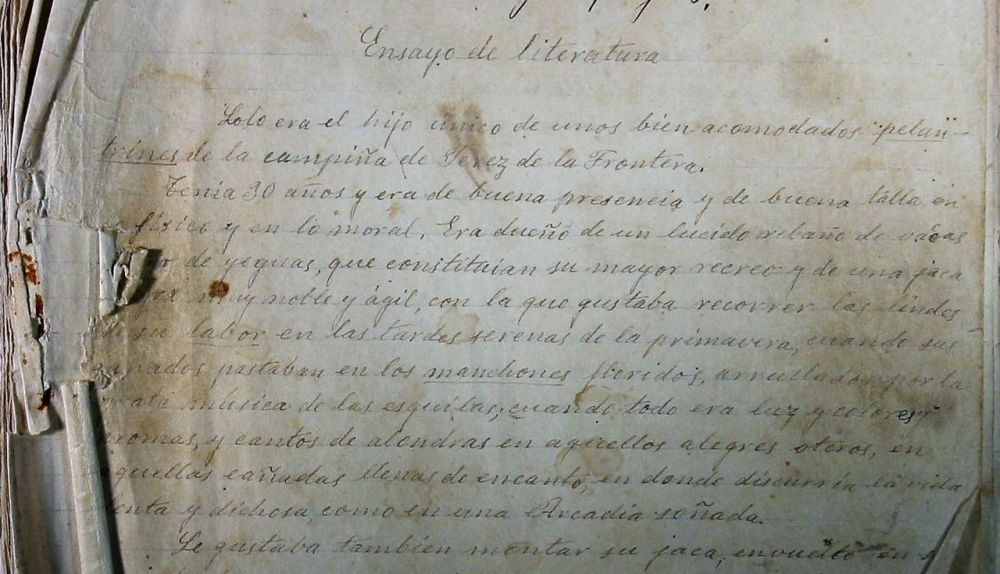 Ensayo de literatura
Lolo era el hijo único de unos bien acomodados "pelan-
trines de la campiña de Jerez de la Frontera.
Tenia 30 años y era de buena presencia y de buena talla en
fízico y en lo moral. Era dueño de un lucido rebaño de vacas
de yeguas, que constituian su mayor recreo y de una jaca
muy noble y ágil, con la que gustaba recorrer las lindes
de su labor en las tardes serenas de la primavera, cuando sus
ganados pastaban en los manchones floridos, arrullados por la
musica de las esquilas; cuando todo era luz y colores y
aromas, y cantos de alondras en aquellos alegres oteros, en
aquellas cañadas llenas de encanto, en donde discurría la vida
lenta y dichosa como en una Arcadia soñada.
Le gustaba tambien montar su jaca, envuelto en